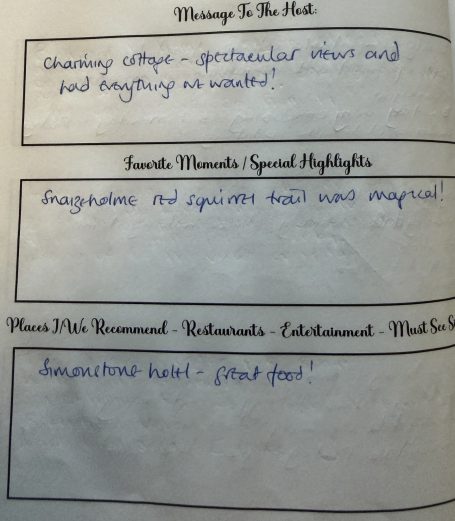 Message To The Host:
Charming cottage - spectacular views and
had everything we wanted!
Favorite Moments / Special Highlights
Snaizeholme red squirrel trail was magical!
Places I/We Recommend - Restaurants - Entertainment - Must See
Simonstone hotel - great food!